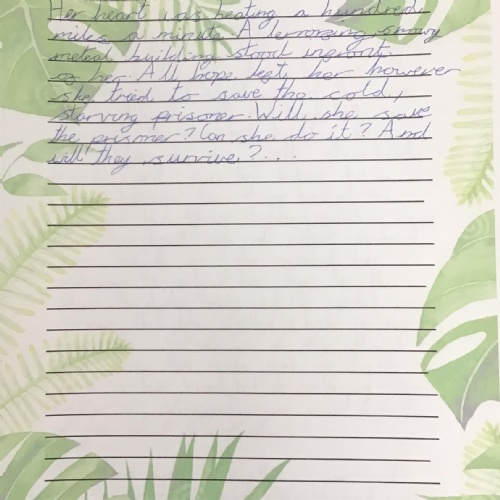 Her heart was beating a hundred
miles a minute. A terrorizing, snowy
metal building stood infront
of her. All hope left her however
she tried to save the cold,
starving prisoner. Will she save
the prisoner? Can she do it? And
will they survive?...